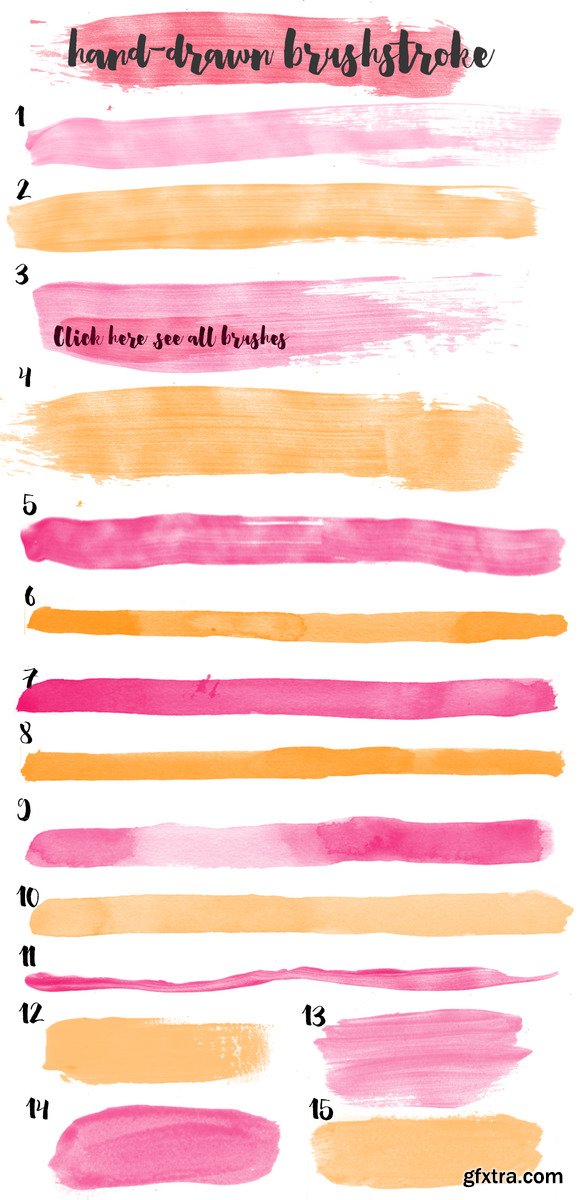 hand-drawn brushstroke
1
2
3
Click here see all brushes
4
5
6
7
8
9
10
11
12
13
14
15
gfxtra.com